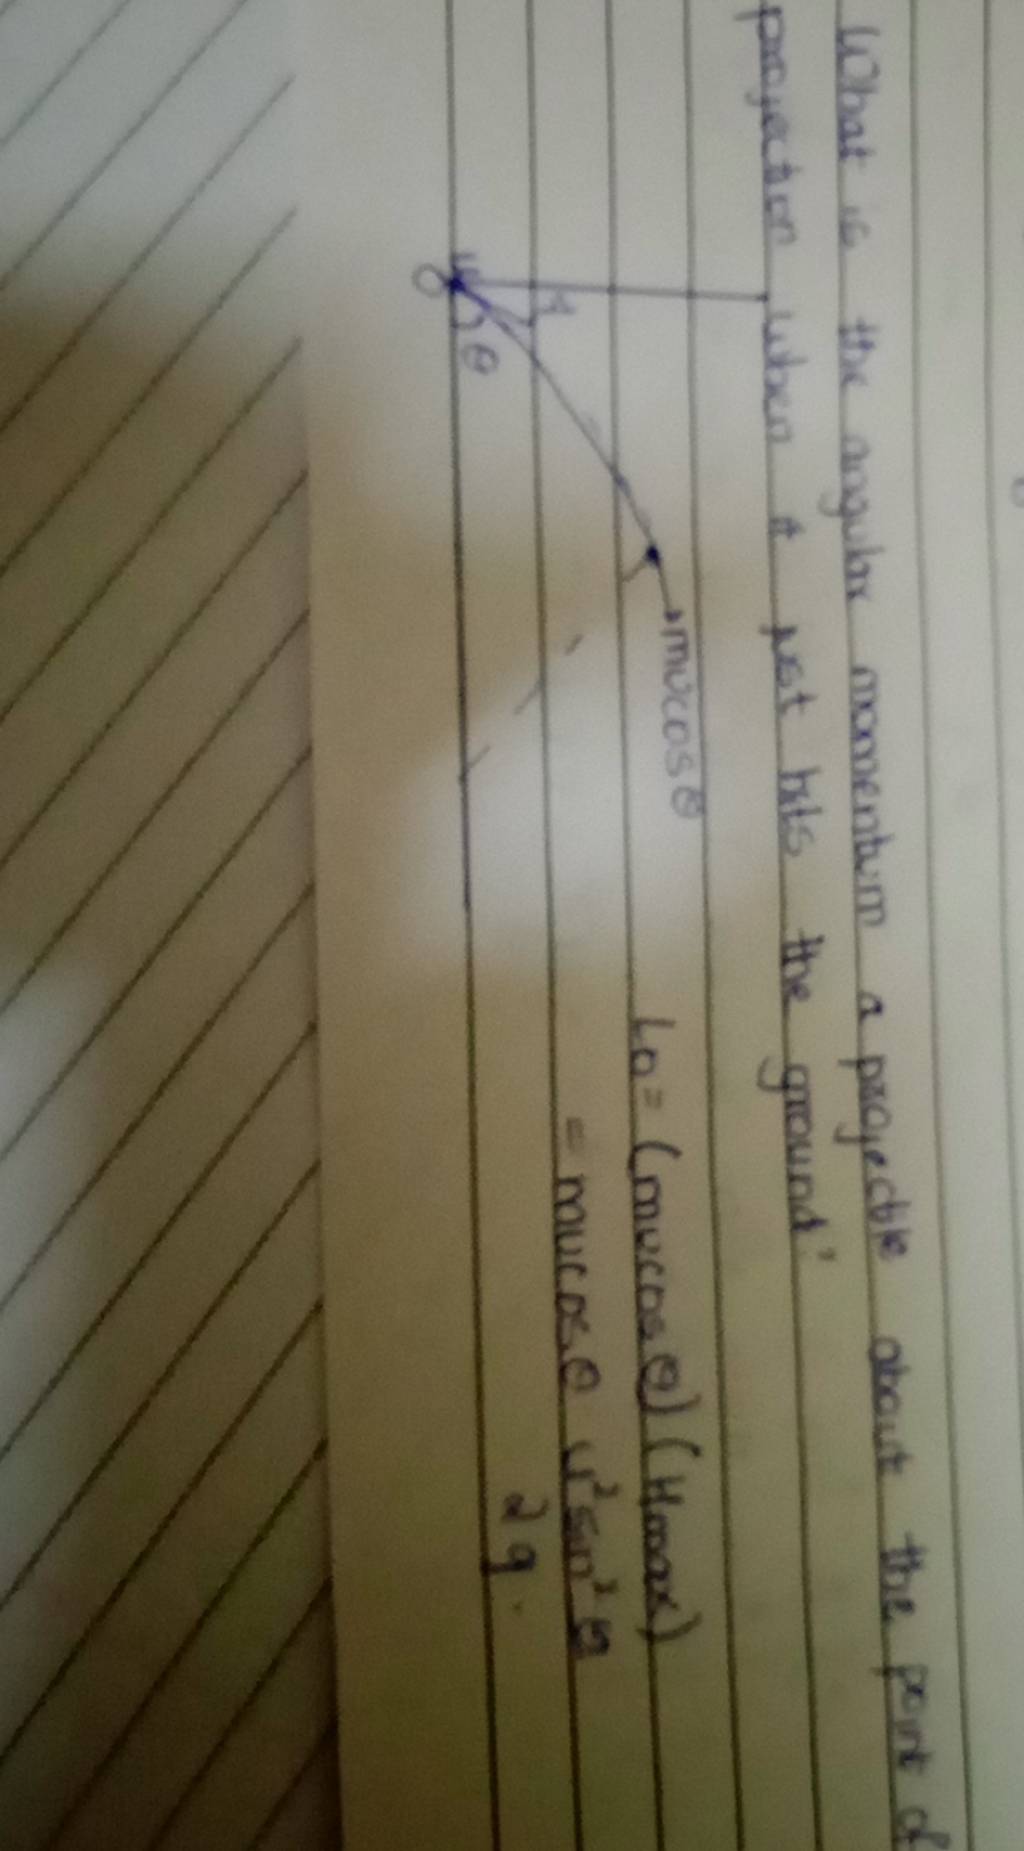 What is the angular momentum a projectile about the point of
projection when it just hits the ground?
u
θ
O
mucosθ
Lo = (mucosθ) (Hmax)
= mucosθ u² sin² θ
2g.